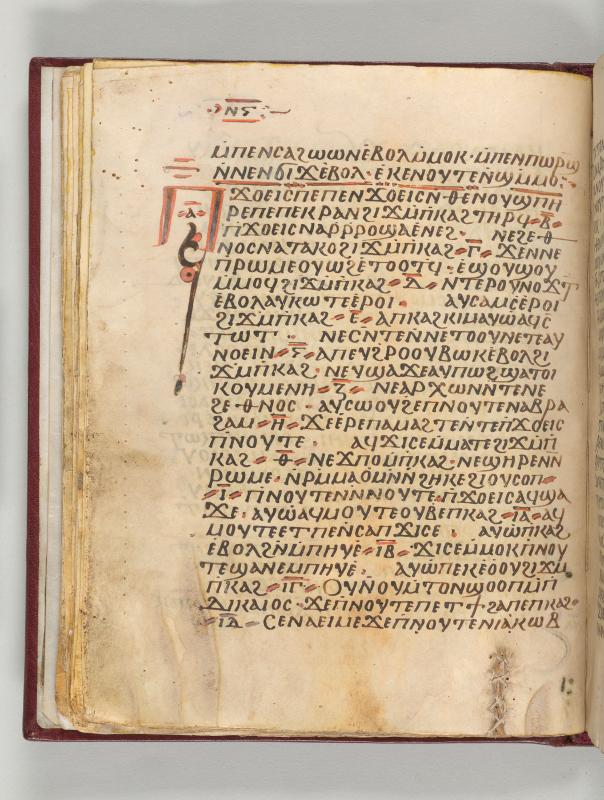 ⲛⲋ
ⲙ̄ⲡⲉⲛⲥⲁϩⲱⲱⲛⲉⲃⲟⲗⲙ̄ⲙⲟⲕ · ⲙ̄ⲡⲉⲛⲡⲱⲣϣ
ⲛ̄ⲛⲉⲛϭⲓϫⲉⲃⲟⲗ · ⲉⲕⲉⲛⲟⲩⲧⲉⲛ̄ϣⲙ̄ⲙⲟ:
ⲡϫⲟⲉⲓⲥⲡⲉⲛϫⲟⲉⲓⲥⲛ·ⲑⲉⲛⲟⲩϣⲡⲏ
ⲁ ⲣⲉⲡⲉⲡⲉⲕⲣⲁⲛϩⲓϫⲙ̄ⲡⲕⲁϩⲧⲏⲣϥ ⲃ̄
ⲡϫⲟⲉⲓⲥⲛⲁⲣ̄ⲣ̄ⲣⲟϣⲁⲉⲛⲉϩ · ⲛⲉϩⲉ·ⲑ
ⲛⲟⲥⲛⲁⲧⲁⲕⲟϩⲓϫⲙ̄ⲡⲕⲁϩ ⲅ̄ ϫⲉⲛⲛⲉ
ⲡⲣⲱⲙⲉⲟⲩⲱϩⲉⲧⲟⲟⲧϥ · ⲉϣⲟⲩϣⲟⲩ
ⲙ̄ⲙⲟϥϩⲓϫⲙ̄ⲡⲕⲁϩ ⲇ̄ ⲛⲧⲉⲣⲟⲩⲛⲟϫϥ
ⲉⲃⲟⲗⲁⲩⲕⲱⲧⲉⲉⲣⲟⲓ · ⲁⲩⲥⲁⲙⲥⲉⲣⲟⲓ
ϩⲓϫⲙ̄ⲡⲕⲁϩ ⲉ̄ ⲁⲡⲕⲁϩⲕⲓⲙⲁⲩⲱⲁϥⲥ
ⲧⲱⲧ · ⲛⲉⲥⲛⲧⲉⲛ̄ⲛⲉⲧⲟⲟⲩⲛⲉⲧⲁⲩ
ⲛⲟⲉⲓⲛ ⲋ̄ ⲁⲡⲉⲩϩⲣⲟⲟⲩⲃⲱⲕⲉⲃⲟⲗϩⲓ
ϫⲙ̄ⲡⲕⲁϩ · ⲛⲉⲩϣⲁϫⲉⲁⲩⲡⲱϩϣⲁⲧⲟⲓ
ⲕⲟⲩⲙⲉⲛⲏ ⲍ̄ ⲛⲉⲁⲣⲭⲱⲛⲛ̄ⲧⲉⲛⲉ
ϩⲉ·ⲑⲛⲟⲥ · ⲁⲩⲥⲱⲟⲩϩⲉⲡⲛⲟⲩⲧⲉⲛⲁⲃⲣⲁ
ϩⲁⲙ ⲏ̄ ϫⲉⲉⲣⲉⲡⲁⲙⲁϩⲧⲉⲛ̄ⲧⲉⲡϫⲟⲉⲓⲥ
ⲡⲛⲟⲩⲧⲉ · ⲁϥϫⲓⲥⲉⲙ̄ⲙⲁⲧⲉϩⲓϫⲙ̄ⲡ
ⲕⲁϩ ⲑ̄ ⲛⲉϫⲡⲟⲙ̄ⲡⲕⲁϩ · ⲛⲉϣⲏⲣⲉⲛⲣ̄
ⲣⲱⲙⲉ · ⲛ̄ⲣⲙ̄ⲙⲁⲟⲙⲛ̄ⲛϩⲏⲕⲉϩⲓⲟⲩⲥⲟⲡ
ⲓ̄ ⲡⲛⲟⲩⲧⲉⲛⲛⲛⲟⲩⲧⲉ · ⲡϫⲟⲉⲓⲥⲁϥϣⲁ
ϫⲉ · ⲁⲩⲱⲁϥⲙⲟⲩⲧⲉⲟⲩⲃⲉⲡⲕⲁϩ ⲓⲁ̄ ⲁϥ
ⲙⲟⲩⲧⲉⲉⲧⲡⲉⲛ̄ⲥⲁⲡϫⲓⲥⲉ · ⲁⲩⲱⲡⲕⲁϩ
ⲉⲃⲟⲗϩⲛ̄ⲙ̄ⲡⲏⲩⲉ ⲓⲃ̄ ϫⲓⲥⲉⲙ̄ⲙⲟⲕⲡⲛⲟⲩ
ⲧⲉϣⲁⲛⲉⲙⲡⲏⲩⲉ · ⲁⲩⲱⲡⲉⲕⲉⲟⲟⲩϩⲓϫⲙ̄
ⲡⲕⲁϩ ⲓⲅ̄ ⲟⲩⲛⲟⲩⲙ̄ⲧⲟⲛϣⲟⲟⲡⲙ̄ⲡ
ⲇⲓⲕⲁⲓⲟⲥ · ϫⲉⲡⲛⲟⲩⲧⲉⲡⲉⲧϯϩⲁⲡⲉⲡⲕⲁϩ
ⲓⲇ̄ ⲥⲉⲛⲁⲉⲓⲙⲉϫⲉⲡⲛⲟⲩⲧⲉⲛⲓⲁⲕⲱⲃ